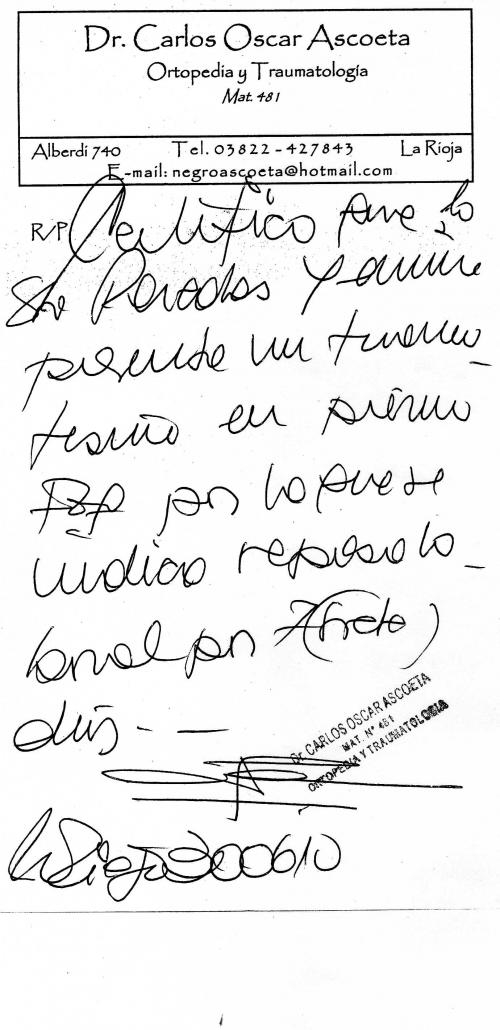 Dr. Carlos Oscar Ascoeta
Ortopedia y Traumatología
Mat. 481
Alberdi 740 Tel. 03822 - 427843 La Rioja
E-mail: negroascoeta@hotmail.com
R/P Certifico que la
Sta Paredes
presenta un
en
por lo que se
indica reposo la_
boral por 7 (siete)
días - —
Dr. CARLOS OSCAR ASCOETA
MAT. N° 481
ORTOPEDIA Y TRAUMATOLOGIA
La Rioja 300610